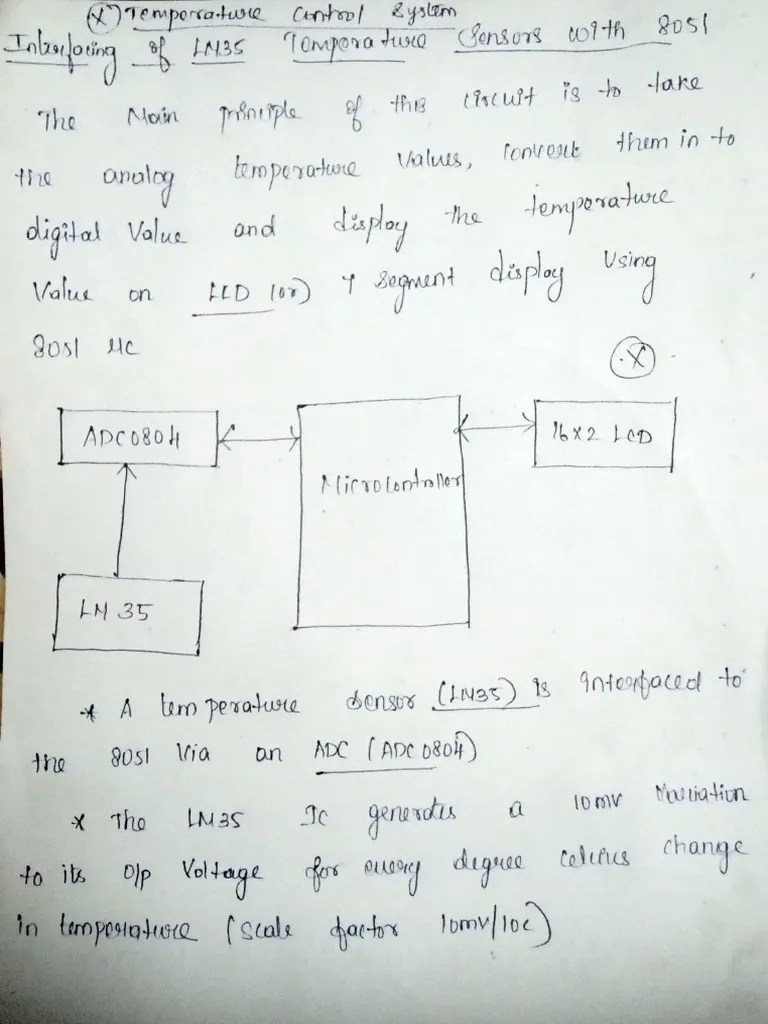 (X) Temperature Control System
Interfacing of LM35 Temperature Sensors with 8051
The Main principle of this circuit is to take
the analog temperature values, convert them in to
digital Value and display the temperature
Value on LCD (or) 7 segment display Using
8051 MC
(X)
ADC0804
Microcontroller
16x2 LCD
LM 35
* A temperature sensor (LM35) is interfaced to
the 8051 Via an ADC (ADC 0804)
* The LM35 Ic generates a 10mv Variation
to its O/p Voltage for every degree celcius change
in temperature (scale factor 10mv/10c)